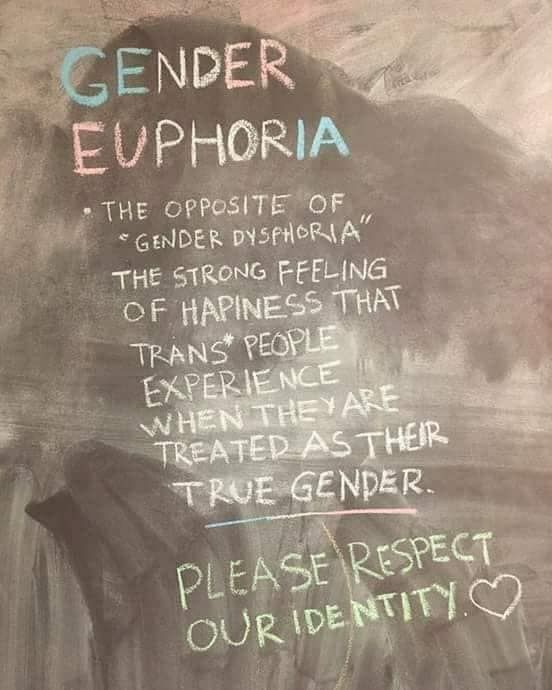 GENDER
EUPHORIA
• THE OPPOSITE OF
"GENDER DYSPHORIA"
THE STRONG FEELING
OF HAPINESS THAT
TRANS* PEOPLE
EXPERIENCE
WHEN THEY ARE
TREATED AS THEIR
TRUE GENDER.
PLEASE RESPECT
OUR IDENTITY.♡